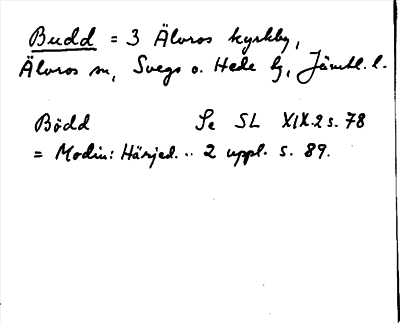 Budd = 3 Älvros kyrkby,
Älvros sn, Svegs o. Hede tg, Jämtl. l.
Bödd Se SL XIX.2 s. 78
= Modin: Härjed. .. 2 uppl. s. 89.